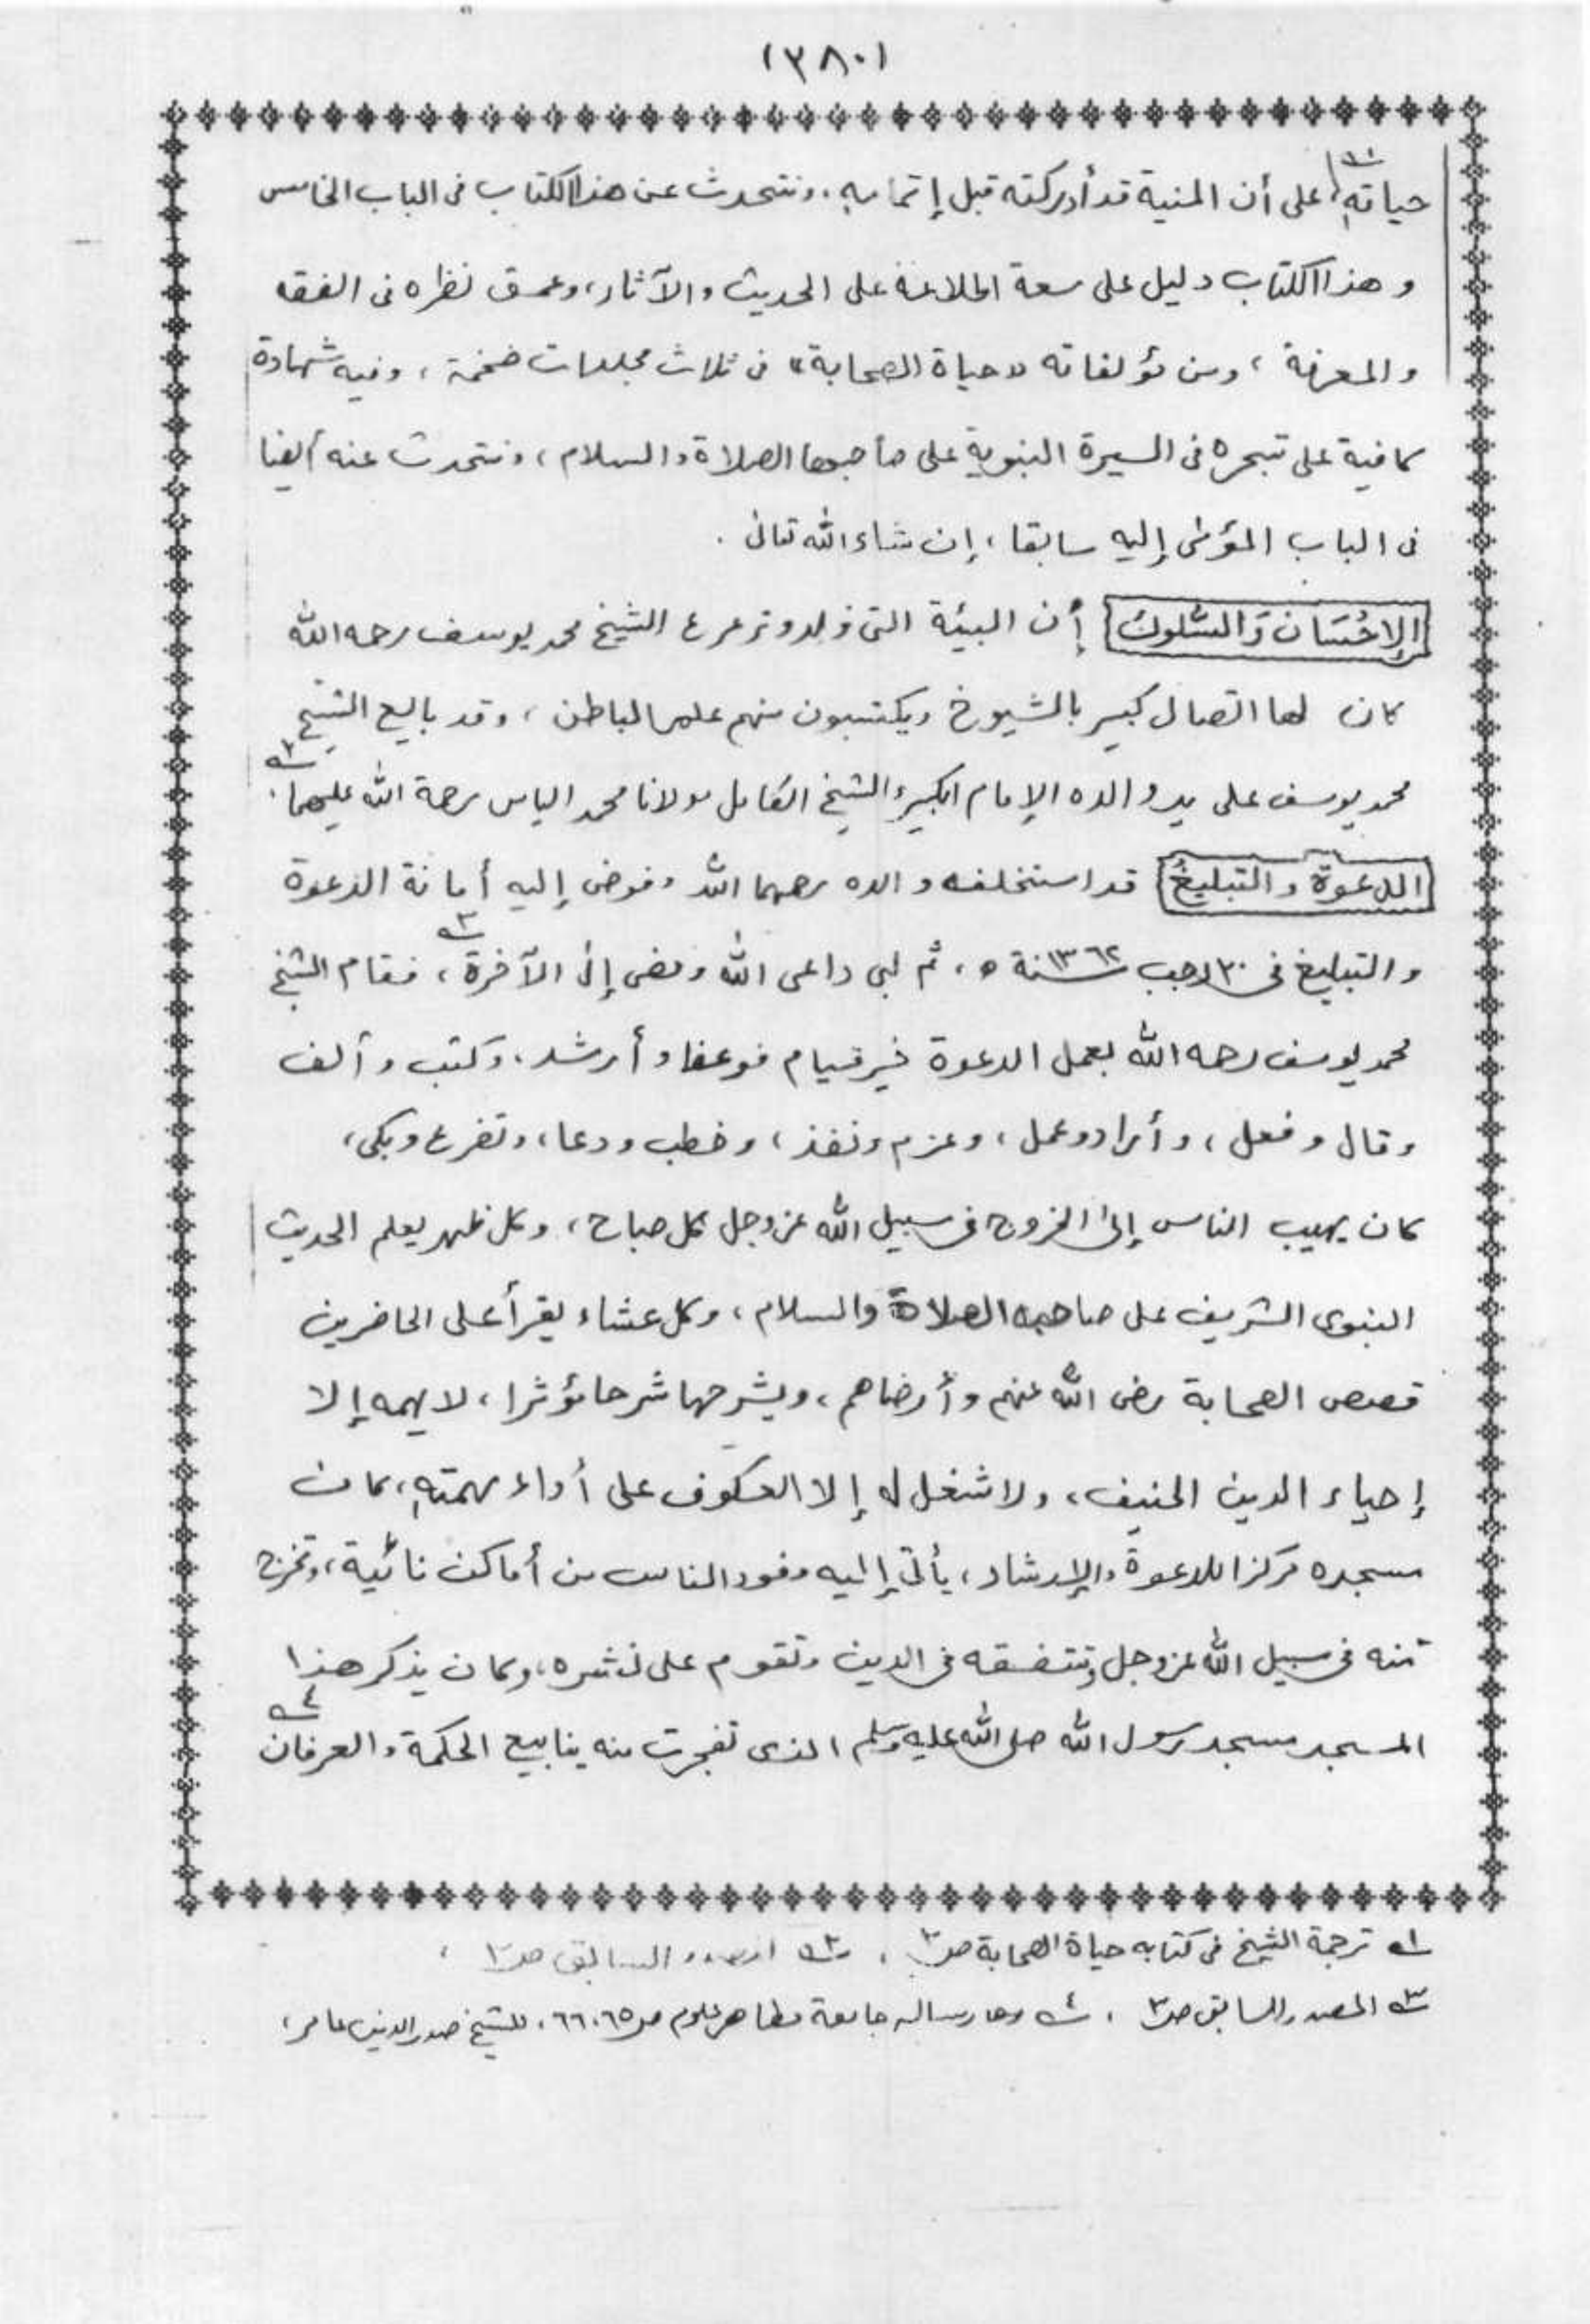 (٣٨٠)
حياته(١)، على أن المنية قد أدركته قبل إتمامه. ونتحدث عن هذا الكتاب فى الباب الخامس
وهذا الكتاب دليل على سعة اطلاعه على الحديث والآثار، وعمق نظره فى الفقه
والمعرفة، ومن مؤلفاته «حياة الصحابة» فى ثلاث مجلدات ضخمة، وفيه شهادة
كافية على تبحره فى السيرة النبوية على صاحبها الصلاة والسلام، ونتحدث عنه أيضا
فى الباب المؤمى إليه سابقا، إن شاء الله تعالى.
الإحْسَان وَالسُّلوك أن البيئة التى ولد وترعرع الشيخ محمد يوسف رحمه الله
كان لها اتصال كبير بالشيوخ ويكتسبون منهم علم الباطن، وقد بايع الشيخ
محمد يوسف على يد والده الإمام الكبير والشيخ الكامل مولانا محمد الياس رحمة الله عليهما ٢.
الدعوة والتبليغ قد استخلفه والده رحمهما الله وفوض إليه أمانة الدعوة
والتبليغ فى ٣٠ رجب سنة ١٣٦٢ ه، ثم لبى داعى الله ومضى إلى الآخرة ٣، فقام الشيخ
محمد يوسف رحمه الله بعمل الدعوة خير قيام فوعظ وأرشد، وكتب وألف
وقال وفعل، وأراد وعمل، وعزم ونفذ، وخطب ودعا، وتضرع وبكى،
كان يهيب الناس إلى الخروج فى سبيل الله عزوجل كل صباح، وكل ظهر يعلم الحديث
النبوى الشريف على صاحبه الصلاة والسلام، وكل عشاء يقرأ على الحاضرين
قصص الصحابة رضى الله عنهم وأرضاهم، ويشرحها شرحا مؤثرا، لا يهمه إلا
إحياء الدين الحنيف، ولا شغل له إلا العكوف على أداء مهمته، كان
مسجده مركزا للدعوة والإرشاد، يأتى إليه وفود الناس من أماكن نائية، وتخرج
منه فى سبيل الله عزوجل وتتفقه فى الدين وتقوم على نشره، وكان يذكر هذا
المسجد مسجد رسول الله صلى الله عليه وسلم الذى تفجرت منه ينابيع الحكمة والعرفان ٤
١ ترجمة الشيخ فى كتابه حياة الصحابة صـ، ٢ السابق صـ،
٣ المصدر السابق صـ، ٤ جامعة مظاهر علوم ص ٦٥، ٦٦، للشيخ صدر الدين عامر،